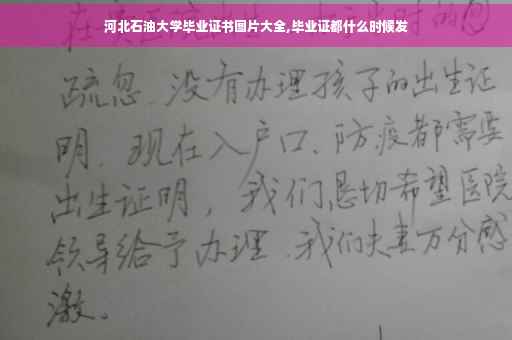 河北石油大学毕业证书图片大全,毕业证都什么时候发
疏忽.没有办理孩子的出生证
明.现在入户口、防疫都需要
出生证明，我们恳切希望医院
领导给予办理.我们夫妻万分感
激。